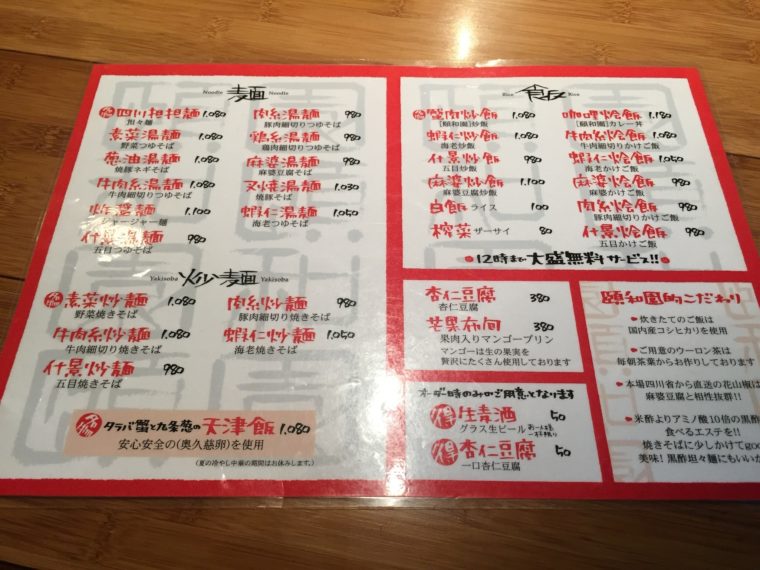 Noodle 麺 Noodle
名 四川担担麺 1.080
担々麺
素菜湯麺 1.080
野菜つゆそば
葱油湯麺 1.080
焼豚ネギそば
牛肉糸湯麺 1.080
牛肉細切りつゆそば
炸醤麺 1.100
ジャージャー麺
什景湯麺 980
五目つゆそば
肉糸湯麺 980
豚肉細切りつゆそば
鶏糸湯麺 980
鶏肉細切りつゆそば
麻婆湯麺 980
麻婆豆腐そば
叉焼湯麺 1.030
焼豚そば
蝦仁湯麺 1.050
海老つゆそば
Yakisoba 炒麺 Yakisoba
名 素菜炒麺 1.080
野菜焼きそば
牛肉糸炒麺 1.080
牛肉細切り焼きそば
什景炒麺 980
五目焼きそば
肉糸炒麺 980
豚肉細切り焼きそば
蝦仁炒麺 1.050
海老焼きそば
名物 タラバ蟹と九条葱の天津飯 1.080
安心安全の(奥久慈卵)を使用
(夏の冷やし中華の期間はお休みします。)
Rice 食飯 Rice
名 蟹肉炒飯 1.080
[頤和園]炒飯
蝦仁炒飯 1.080
海老炒飯
什景炒飯 980
五目炒飯
麻婆炒飯 1.100
麻婆豆腐炒飯
白飯 ライス 100
搾菜 ザーサイ 80
咖哩烩飯 1.180
[頤和園]カレー丼
牛肉糸烩飯 1.080
牛肉細切りかけご飯
蝦仁烩飯 1.050
海老かけご飯
麻婆烩飯 980
麻婆かけご飯
肉糸烩飯 980
豚肉細切りかけご飯
什景烩飯 980
五目かけご飯
12時まで大盛無料サービス!!
杏仁豆腐 380
杏仁豆腐
芒果布甸 380
果肉入りマンゴープリン
マンゴーは生の果実を
贅沢にたくさん使用しております
オーダー時のみのご用意となります
得 生青酒 50
グラス生ビール お一人様一杯限り
得 杏仁豆腐 50
一口杏仁豆腐
頤和園的こだわり
炊きたてのご飯は
国内産コシヒカリを使用
ご用意のウーロン茶は
毎朝茶葉からお作りしております
本場四川省から直送の花山椒は
麻婆豆腐と相性抜群!!
米酢よりアミノ酸10倍の黒酢
食べるエステを!!
焼きそばに少しかけてgoo
美味! 黒酢坦々麺にもいいか